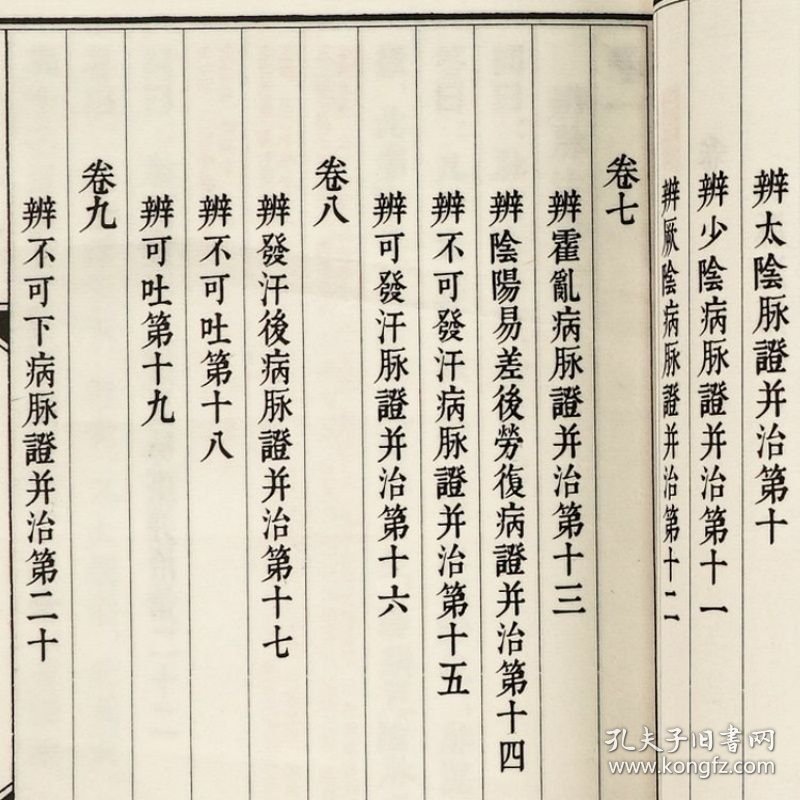 辨太陰脉證并治第十
辨少陰病脉證并治第十一
辨厥陰病脉證并治第十二
卷七
辨霍亂病脉證并治第十三
辨陰陽易差後勞復病證并治第十四
辨不可發汗病脉證并治第十五
辨可發汗脉證并治第十六
卷八
辨發汗後病脉證并治第十七
辨不可吐第十八
辨可吐第十九
卷九
辨不可下病脉證并治第二十
孔夫子旧書网
www.kongfz.com